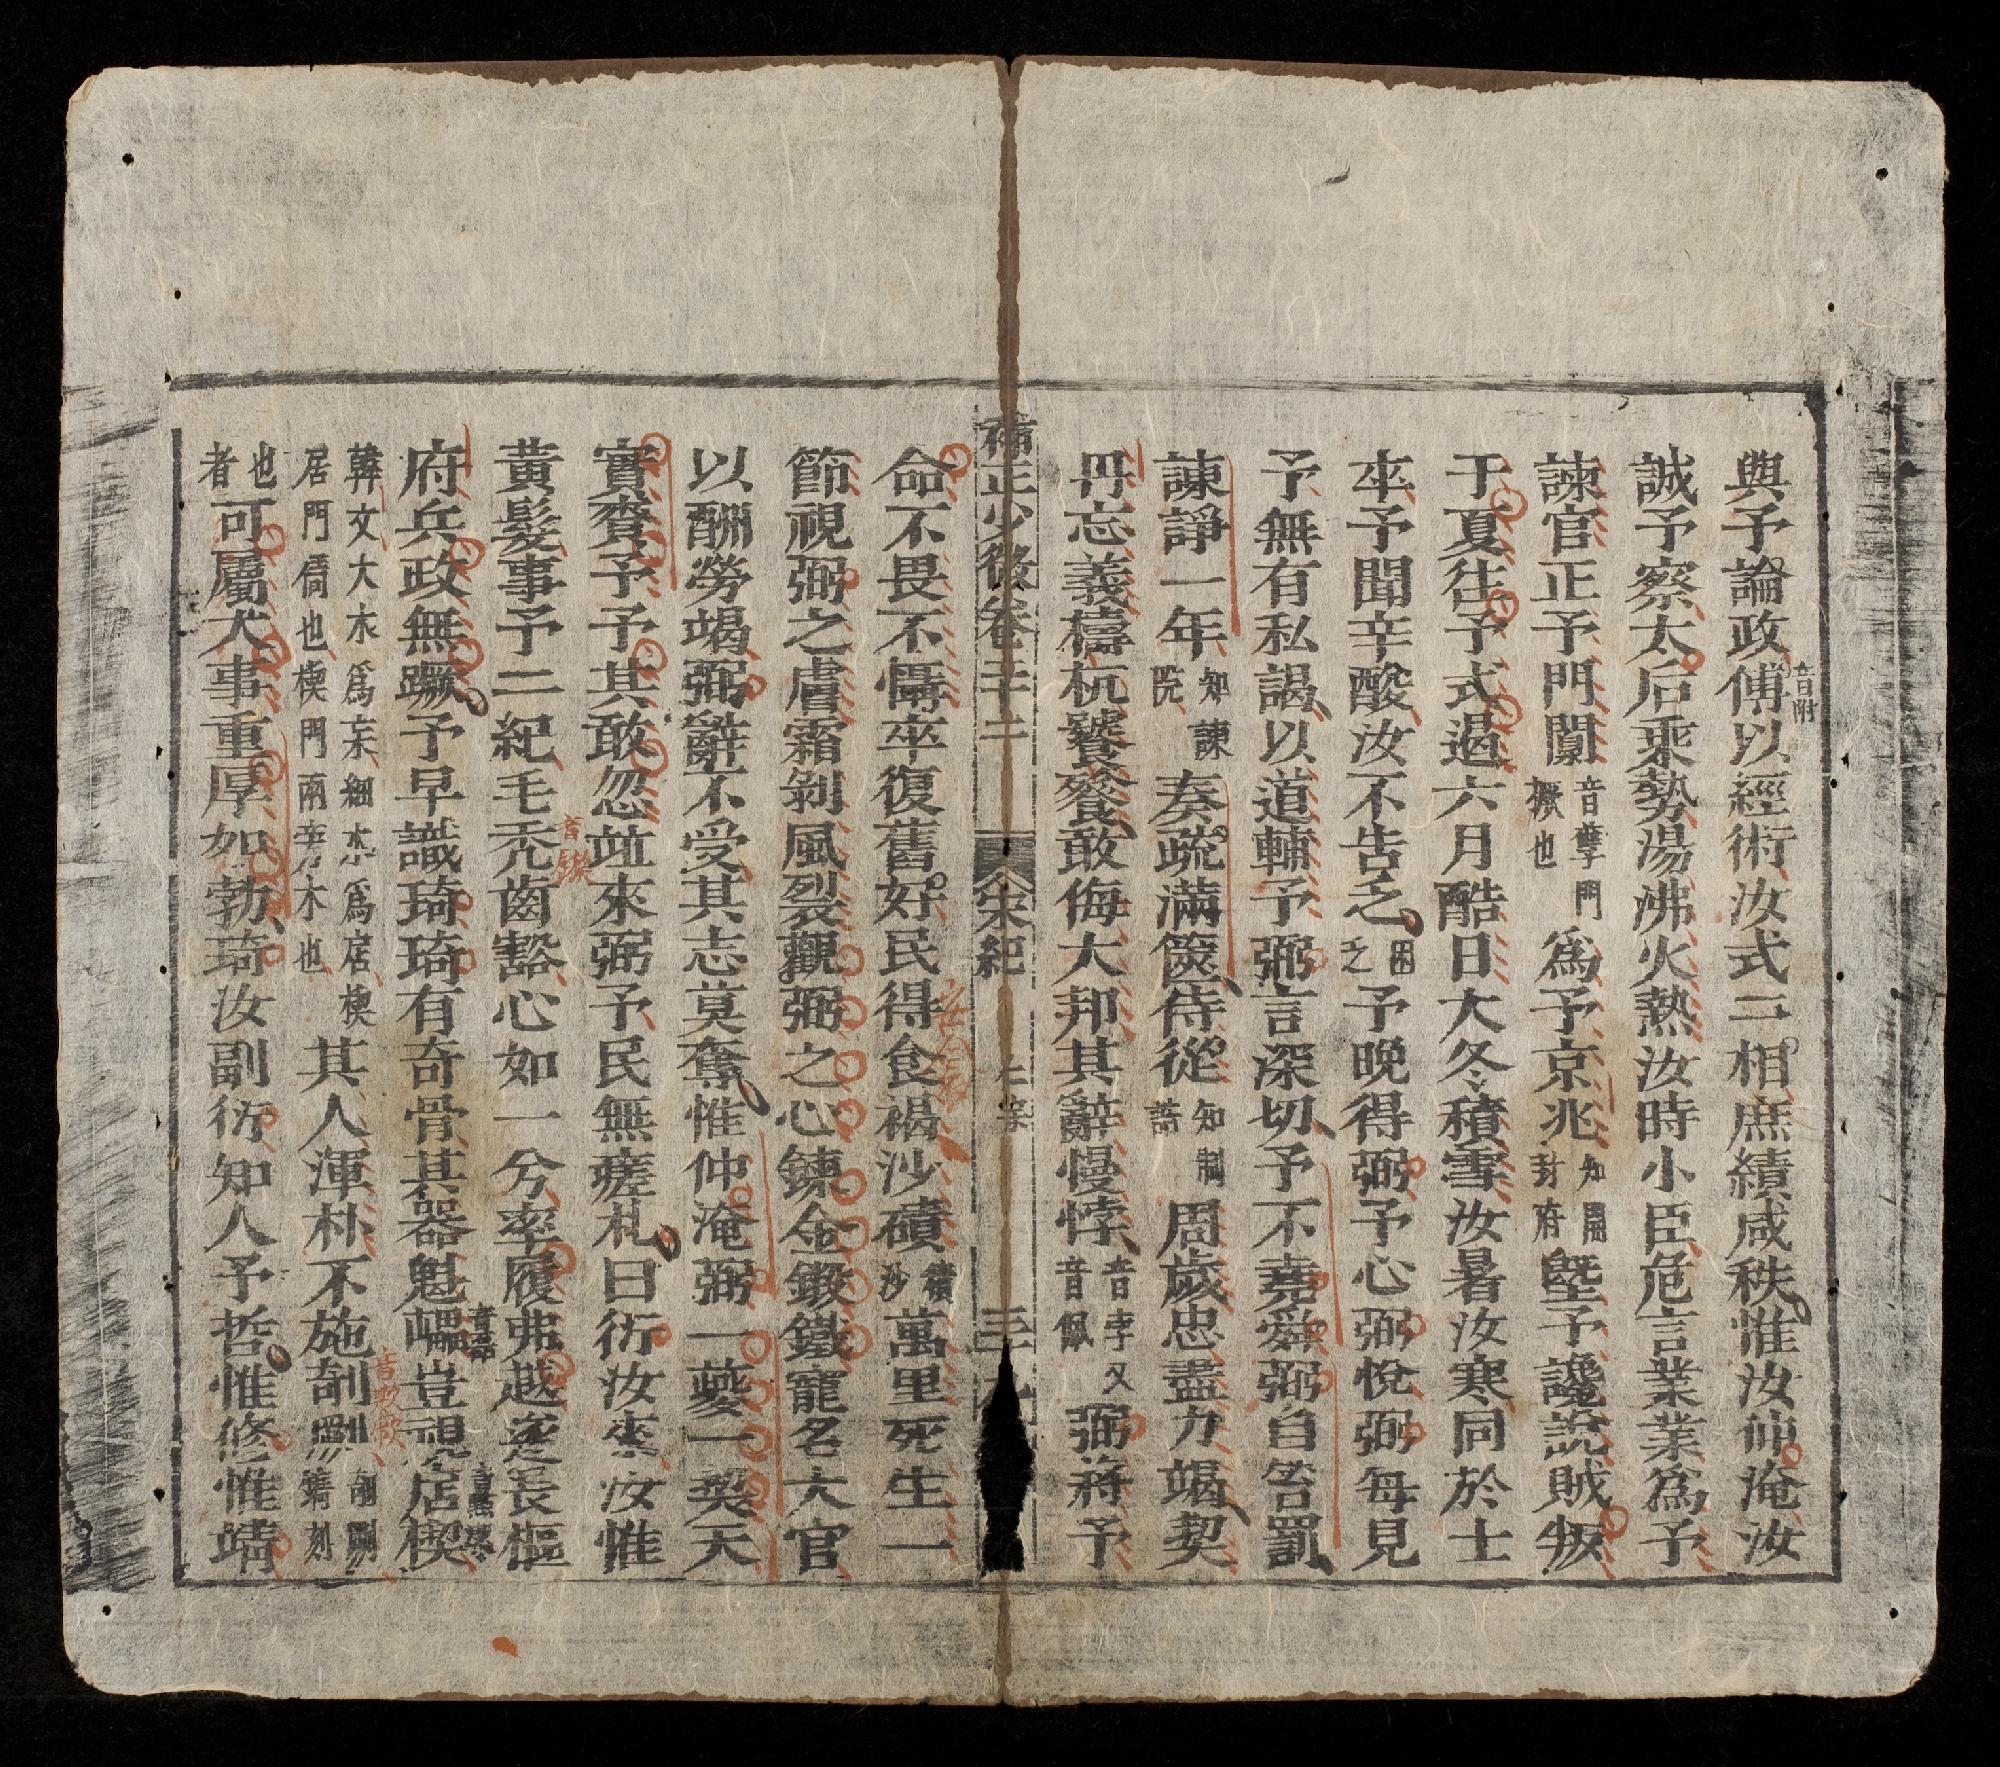 與予論政傅音附以經術汝式二相庶績咸秩惟汝仲淹汝
誠予察太后乘勢湯沸火熱汝時小臣危言業業為予
諫官正予門闑音孽門橛也為予京兆知開封府墍予讒說賊叛
于夏往予式遏六月酷日大冬積雪汝暑汝寒同於士
卒予聞辛酸汝不告乏困乏予晚得弼予心弼悅弼每見
予無有私謁以道輔予弼言深切予不堯舜弼自笞罰
諫諍一年知諫院奏疏滿篋侍從知制誥周歲忠盡力竭契
丹忘義檮杌饕餮敢侮大邦其辭慢悖音孛又音佩弼將予
命不畏不懾卒復舊好民得食褐沙磧沙積萬里死生一
補正少微卷三十二
宋紀
仁宗
節視弼之膚霜剝風裂觀弼之心鍊金鍛鐵寵名大官
以酬勞竭弼辭不受其志莫奪惟仲淹弼一夔一契天
實賚予予其敢忽竝來弼予民無瘥札曰衍汝來汝惟
黃髮事予二紀毛禿齒豁心如一兮率履弗越遂長樞
府兵政無蹶予早識琦琦有奇骨其器魁礧豈視扂楔
韓文大木為杗細木為扂楔居門僑也楔門兩旁木也其人渾朴不施剞劂剞劂鐫刻
也者可屬大事重厚如勃琦汝副衍知人予哲惟修惟靖